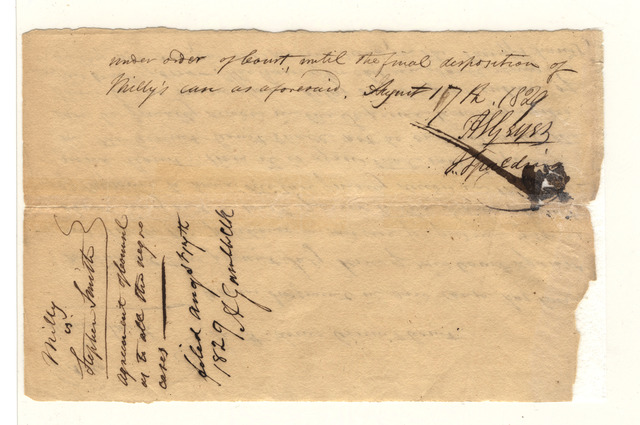 under order of Court, until the final disposition of
Milly's case as aforesaid. August 17th. 1829
H S Geyer
J. Spalding
Milly
vs
Stephen Smith
agreement of Counsel
as to all the negro
cases
filed Aug st 17th
1829 A Gamble Clk